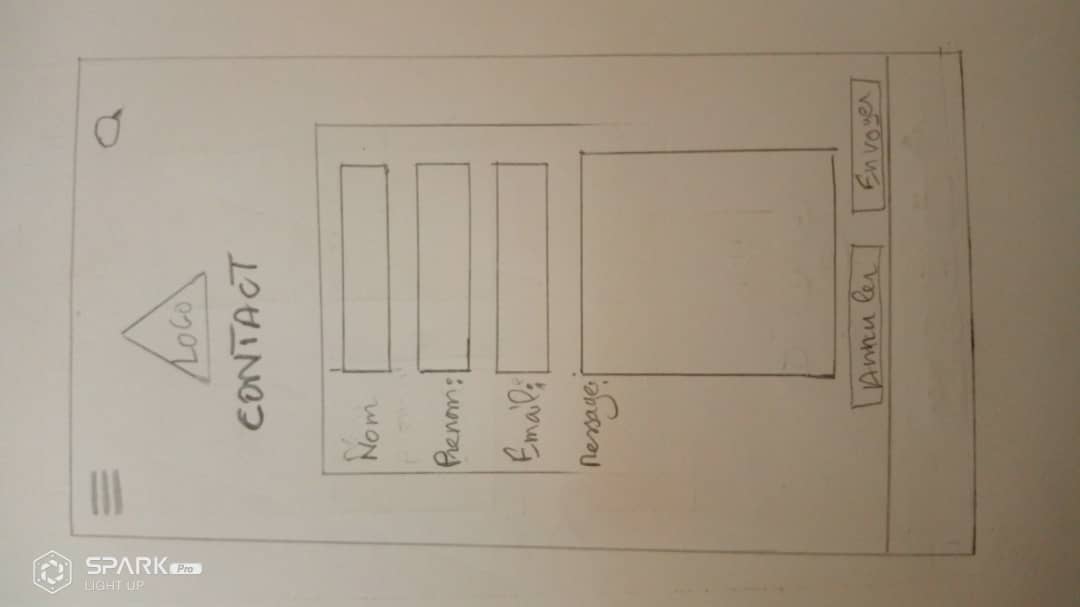 SPARK Pro
LIGHT UP
LOGO
CONTACT
Nom
Prenom:
Email:
Message:
Annuler
Envoyer